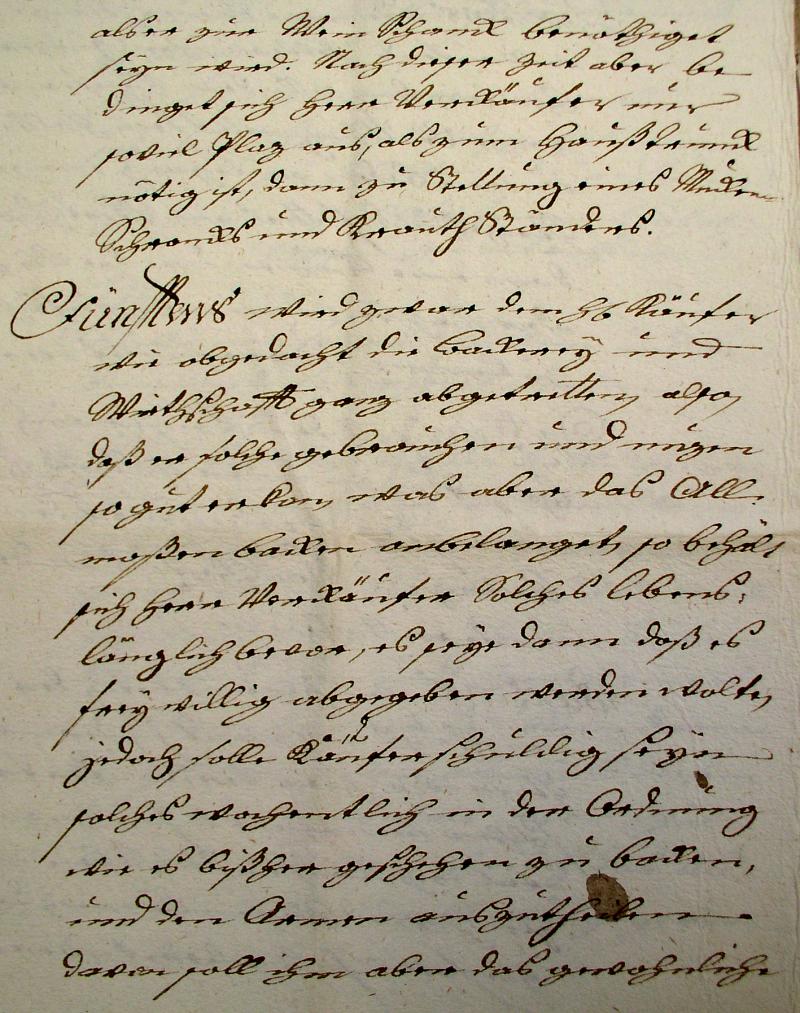 als er zur Wein Schanck benöthiget
seyn wird. Nach dieser Zeit aber be
dinget sich Herr Verkäufer nur
soviel Plaz aus, als zum Haußtrunck
nötig ist, dann zu Stellung eines
Schrancks und Krauth Ständers.
Fünfftens wird zwar dem Hℓ Käufer
wie obgedacht die Backerey und
Wirthschafft ganz abgetretten, also,
daß er solche gebrauchen und nuzen
so gut er kan, was aber das All-
moßen backen anbelanget, so behält
sich Herr Verkäufer Solches lebens-
länglich bevor, es seye dann daß es
freywillig abgegeben werden wolte,
jedoch solle Käufer schuldig seyn
solches wochentlich in der Ordnung
wie es bißher geschehen zu backen,
und den Armen auszutheilen
davon soll ihm aber das gewohnliche